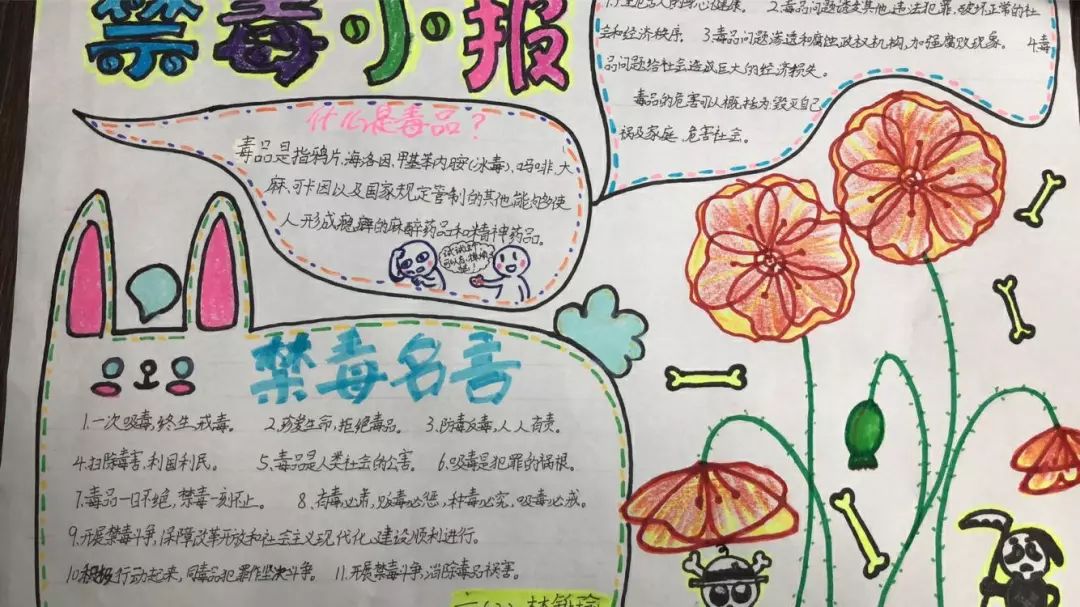 禁毒小报
什么是毒品？
毒品是指鸦片、海洛因、甲基苯丙胺(冰毒)、吗啡、大
麻、可卡因以及国家规定管制的其他能够使
人形成瘾癖的麻醉药品和精神药品。
身心健康。 2.毒品问题诱发其他违法犯罪，破坏正常的社
会和经济秩序。 3.毒品问题渗透和腐蚀政权机构，加强腐败现象。 4.毒
品问题给社会造成巨大的经济损失。
毒品的危害可以概括为毁灭自己
祸及家庭，危害社会。
禁毒名言
1.一次吸毒，终生戒毒。 2.珍爱生命，拒绝毒品。 3.防毒反毒，人人有责。
4.扫除毒害，利国利民。 5.毒品是人类社会的公害。 6.吸毒是犯罪的祸根。
7.毒品一日不绝，禁毒一刻不止。 8.有毒必肃，贩毒必惩，种毒必究，吸毒必戒。
9.开展禁毒斗争，保障改革开放和社会主义现代化建设顺利进行。
10.积极行动起来，同毒品犯罪作坚决斗争。 11.开展禁毒斗争，消除毒品祸害。
六(2) 林